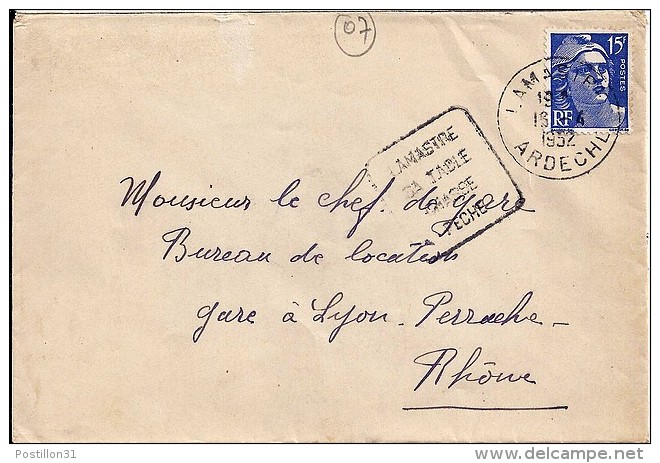 07
15F
POSTES
RF
LAMASTRE
19
16 4
1952
ARDECHE
LAMASTRE
SA TABLE
CHASSE
PECHE
Monsieur le chef de gare
Bureau de location
gare à Lyon-Perrache-
Rhône
Postillon31
delcampe.net